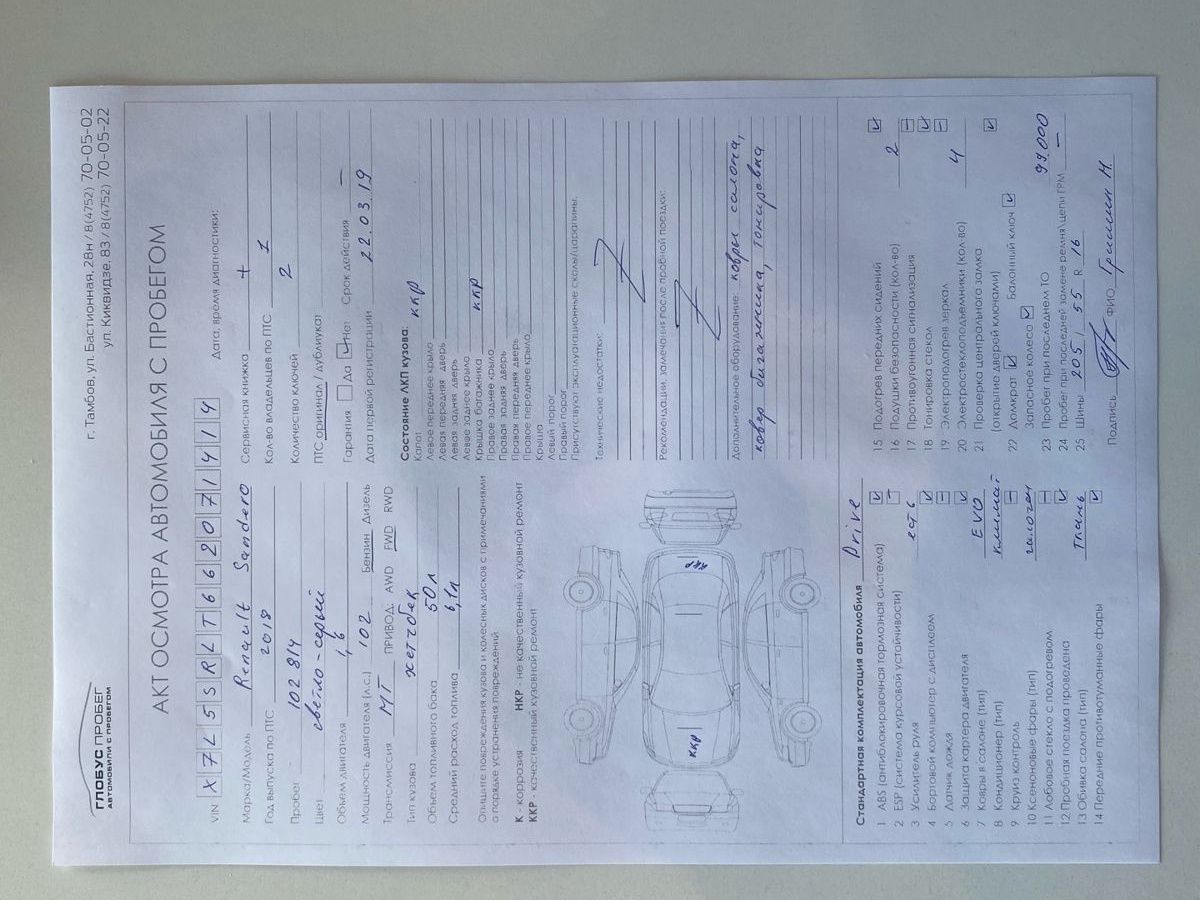 ГЛОБУС ПРОБЕГ
АВТОМОБИЛИ С ПРОБЕГОМ
г. Тамбов, ул. Бастионная, 28н / 8(4752) 70-05-02
ул. Киквидзе, 83 / 8(4752) 70-05-22
АКТ ОСМОТРА АВТОМОБИЛЯ С ПРОБЕГОМ
VIN X7L5SRLT662071414
Дата, время диагностики:
Марка/Модель Renault Sandero
Год выпуска по ПТС 2018
Пробег 102 814
Цвет светло-серый
Объем двигателя 1,6
Мощность двигателя (л.с.) 102 Бензин Дизель
Трансмиссия МТ ПРИВОД: AWD FWD RWD
Тип кузова хетчбек
Объем топливного бака 50л
Средний расход топлива 6,1л
Опишите повреждения кузова и колесных дисков с примечаниями
о порядке устранения повреждений
К - коррозия НКР - не качественный кузовной ремонт
ККР - качественный кузовной ремонт
ККР
ККР
Сервисная книжка +
Кол-во владельцев по ПТС 1
Количество ключей 2
ПТС оригинал / дубликат
Гарантия Да Нет Срок действия —
Дата первой регистрации 22.03.19
Состояние ЛКП кузова:
Капот ККР
Левое переднее крыло
Левая передняя дверь
Левая задняя дверь
Левое заднее крыло
Крышка багажника ККР
Правое заднее крыло
Правая задняя дверь
Правая передняя дверь
Правое переднее крыло
Крыша
Левый порог
Правый порог
Присутствуют эксплуатационные сколы/царапины.
Технические недостатки:
Рекомендации, замечания после пробной поездки:
Дополнительное оборудование: ковры салона,
ковер багажника, тонировка
Стандартная комплектация автомобиля Drive
1 ABS (антиблокировочная тормозная система)
2 ESP (система курсовой устойчивости) —
3 Усилитель руля есть
4 Бортовой компьютер с дисплеем
5 Датчик дождя —
6 Защита картера двигателя
7 Ковры в салоне (тип) EVO
8 Кондиционер (тип) климат
9 Круиз контроль —
10 Ксеноновые фары (тип) галоген
11 Лобовое стекло с подогревом —
12 Пробная поездка проведена
13 Обивка салона (тип) ткань
14 Передние противотуманные фары
15 Подогрев передних сидений
16 Подушки безопасности (кол-во) 2
17 Противоугонная сигнализация —
18 Тонировка стекол
19 Электроподогрев зеркал —
20 Электростеклоподъемники (кол-во) 4
21 Проверка центрального замка
(открытие дверей ключами)
22 Домкрат Балонный ключ
Запасное колесо
23 Пробег при последнем ТО 99.000
24 Пробег при последней замене ремня\цепи ГРМ —
25 Шины 205 / 55 R 16
Подпись ФИО Гришин М.